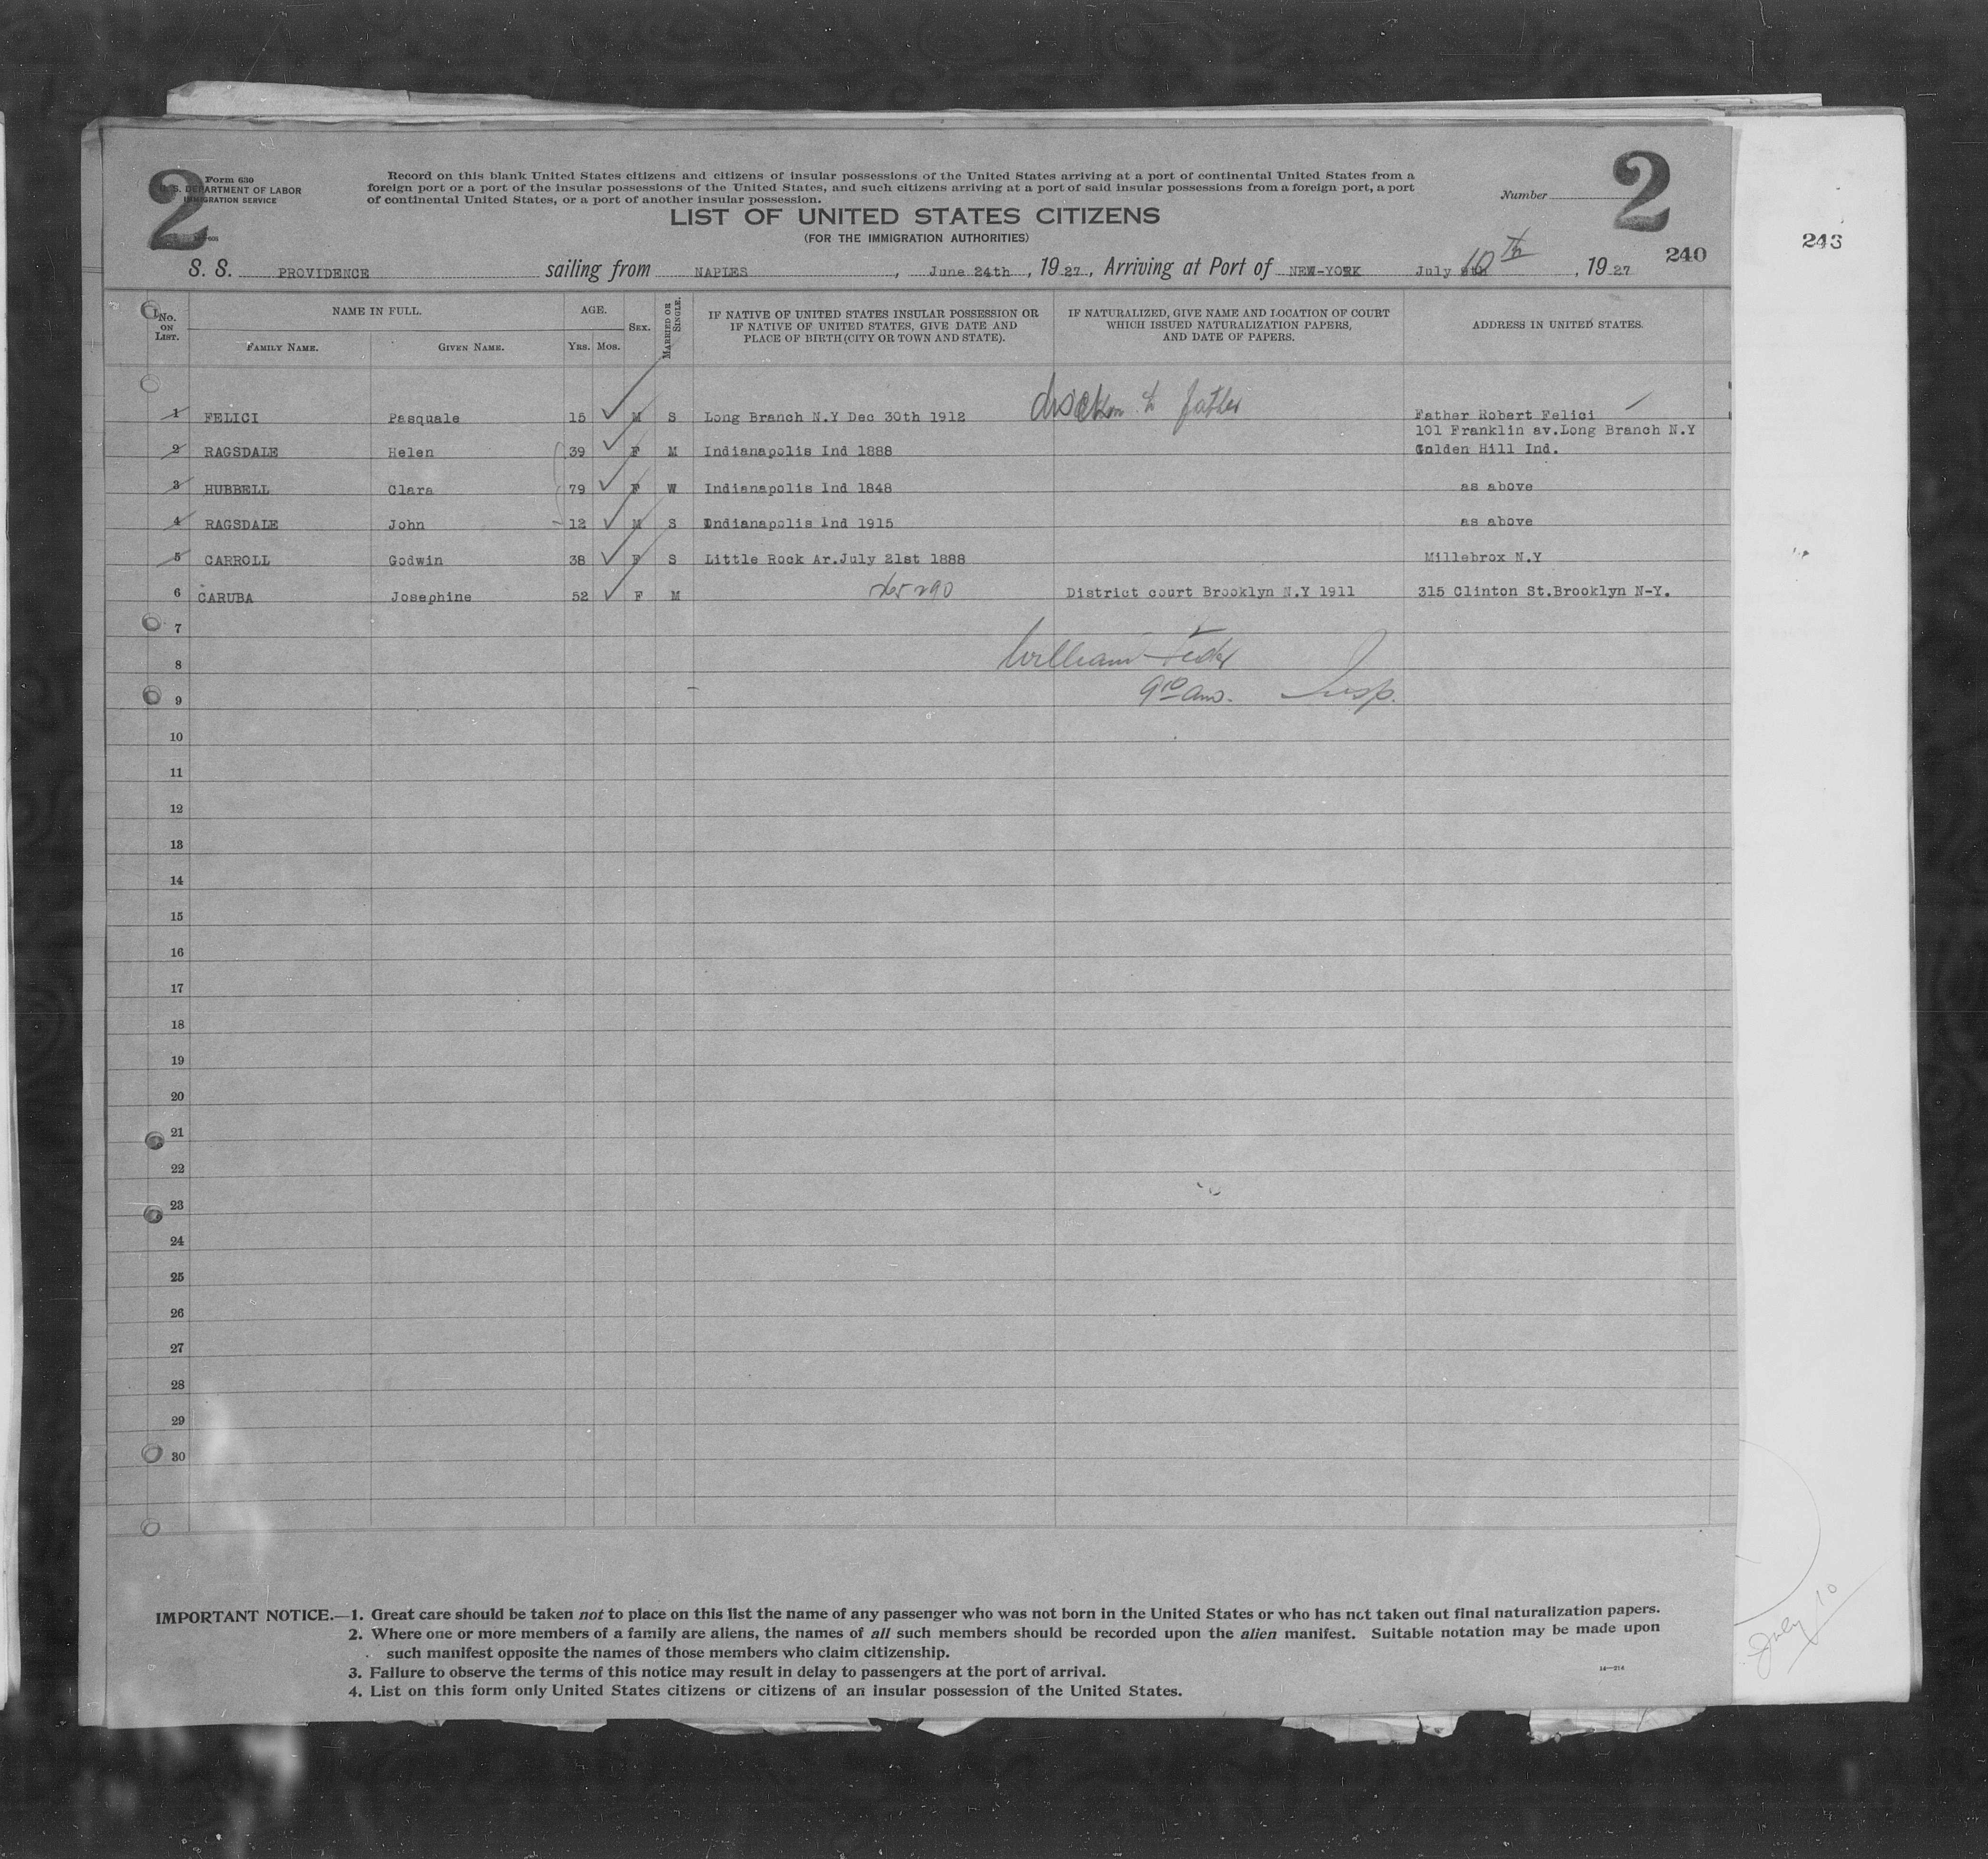 2
Form 630
U. S. DEPARTMENT OF LABOR
IMMIGRATION SERVICE
Record on this blank United States citizens and citizens of insular possessions of the United States arriving at a port of continental United States from a
foreign port or a port of the insular possessions of the United States, and such citizens arriving at a port of said insular possessions from a foreign port, a port
of continental United States, or a port of another insular possession.
LIST OF UNITED STATES CITIZENS
(FOR THE IMMIGRATION AUTHORITIES)
Number
2
240
243
S. S. PROVIDENCE sailing from NAPLES, June 24th, 1927, Arriving at Port of NEW-YORK July 10th, 1927
No. ON LIST.
NAME IN FULL.
FAMILY NAME. GIVEN NAME.
AGE.
Yrs. Mos.
SEX.
MARRIED OR SINGLE.
IF NATIVE OF UNITED STATES INSULAR POSSESSION OR
IF NATIVE OF UNITED STATES, GIVE DATE AND
PLACE OF BIRTH (CITY OR TOWN AND STATE).
IF NATURALIZED, GIVE NAME AND LOCATION OF COURT
WHICH ISSUED NATURALIZATION PAPERS,
AND DATE OF PAPERS.
ADDRESS IN UNITED STATES.
1 FELICI Pasquale 15 M S Long Branch N.Y Dec 30th 1912 to father Father Robert Felici
101 Franklin av.Long Branch N.Y
2 RAGSDALE Helen 39 F M Indianapolis Ind 1888 Golden Hill Ind.
3 HUBBELL Clara 79 F W Indianapolis Ind 1848 as above
4 RAGSDALE John 12 M S Indianapolis Ind 1915 as above
5 CARROLL Godwin 38 F S Little Rock Ar.July 21st 1888 Millebrox N.Y
6 CARUBA Josephine 52 F M District court Brooklyn N.Y 1911 315 Clinton St.Brooklyn N-Y.
7
William
8
Insp.
9
10
11
12
13
14
15
16
17
18
19
20
21
22
23
24
25
26
27
28
29
30
IMPORTANT NOTICE.—1. Great care should be taken not to place on this list the name of any passenger who was not born in the United States or who has not taken out final naturalization papers.
2. Where one or more members of a family are aliens, the names of all such members should be recorded upon the alien manifest. Suitable notation may be made upon
such manifest opposite the names of those members who claim citizenship.
3. Failure to observe the terms of this notice may result in delay to passengers at the port of arrival.
4. List on this form only United States citizens or citizens of an insular possession of the United States.
14—214
July 10